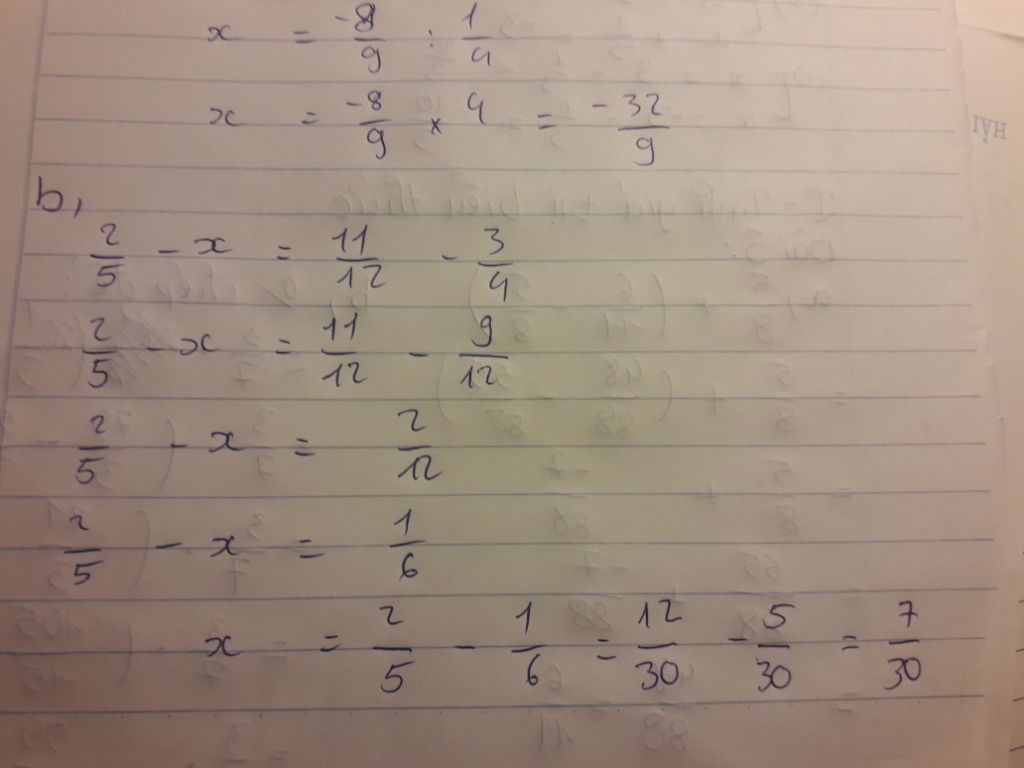 x = -8/9 : 1/4
x = -8/9 × 4 = -32/9
b,
2/5 - x = 11/12 - 3/4
2/5 - x = 11/12 - 9/12
2/5 - x = 2/12
2/5 - x = 1/6
x = 2/5 - 1/6 = 12/30 - 5/30 = 7/30
HẢI